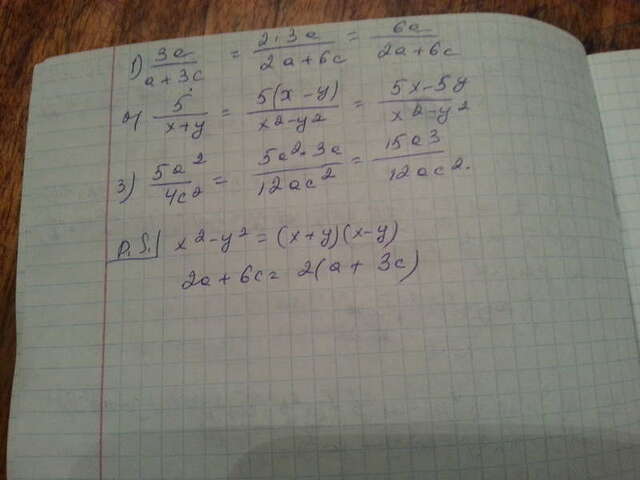 1) 3a/(a+3c) = 2·3a/(2a+6c) = 6a/(2a+6c)
2) 5/(x+y) = 5(x-y)/(x²-y²) = (5x-5y)/(x²-y²)
3) 5a²/4c² = 5a²·3a/12ac² = 15a³/12ac².
P.S.! x²-y² = (x+y)(x-y)
2a+6c = 2(a+3c)